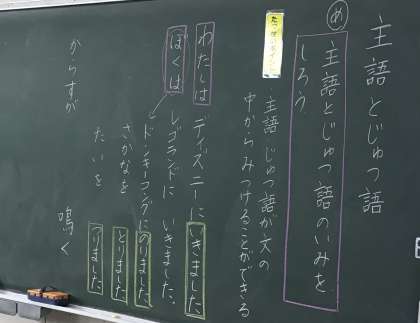 主語とじゅつ語
め
主語とじゅつ語のいみを
しろう
たっせいポイント
主語 じゅつ語が文の
中からみつけることができる
わたしは ディズニーに いきました
ぼくは レゴランドに いきました。
ドンキーコングに のりました
さかなを とりました
たいを つりました
からすが 鳴く